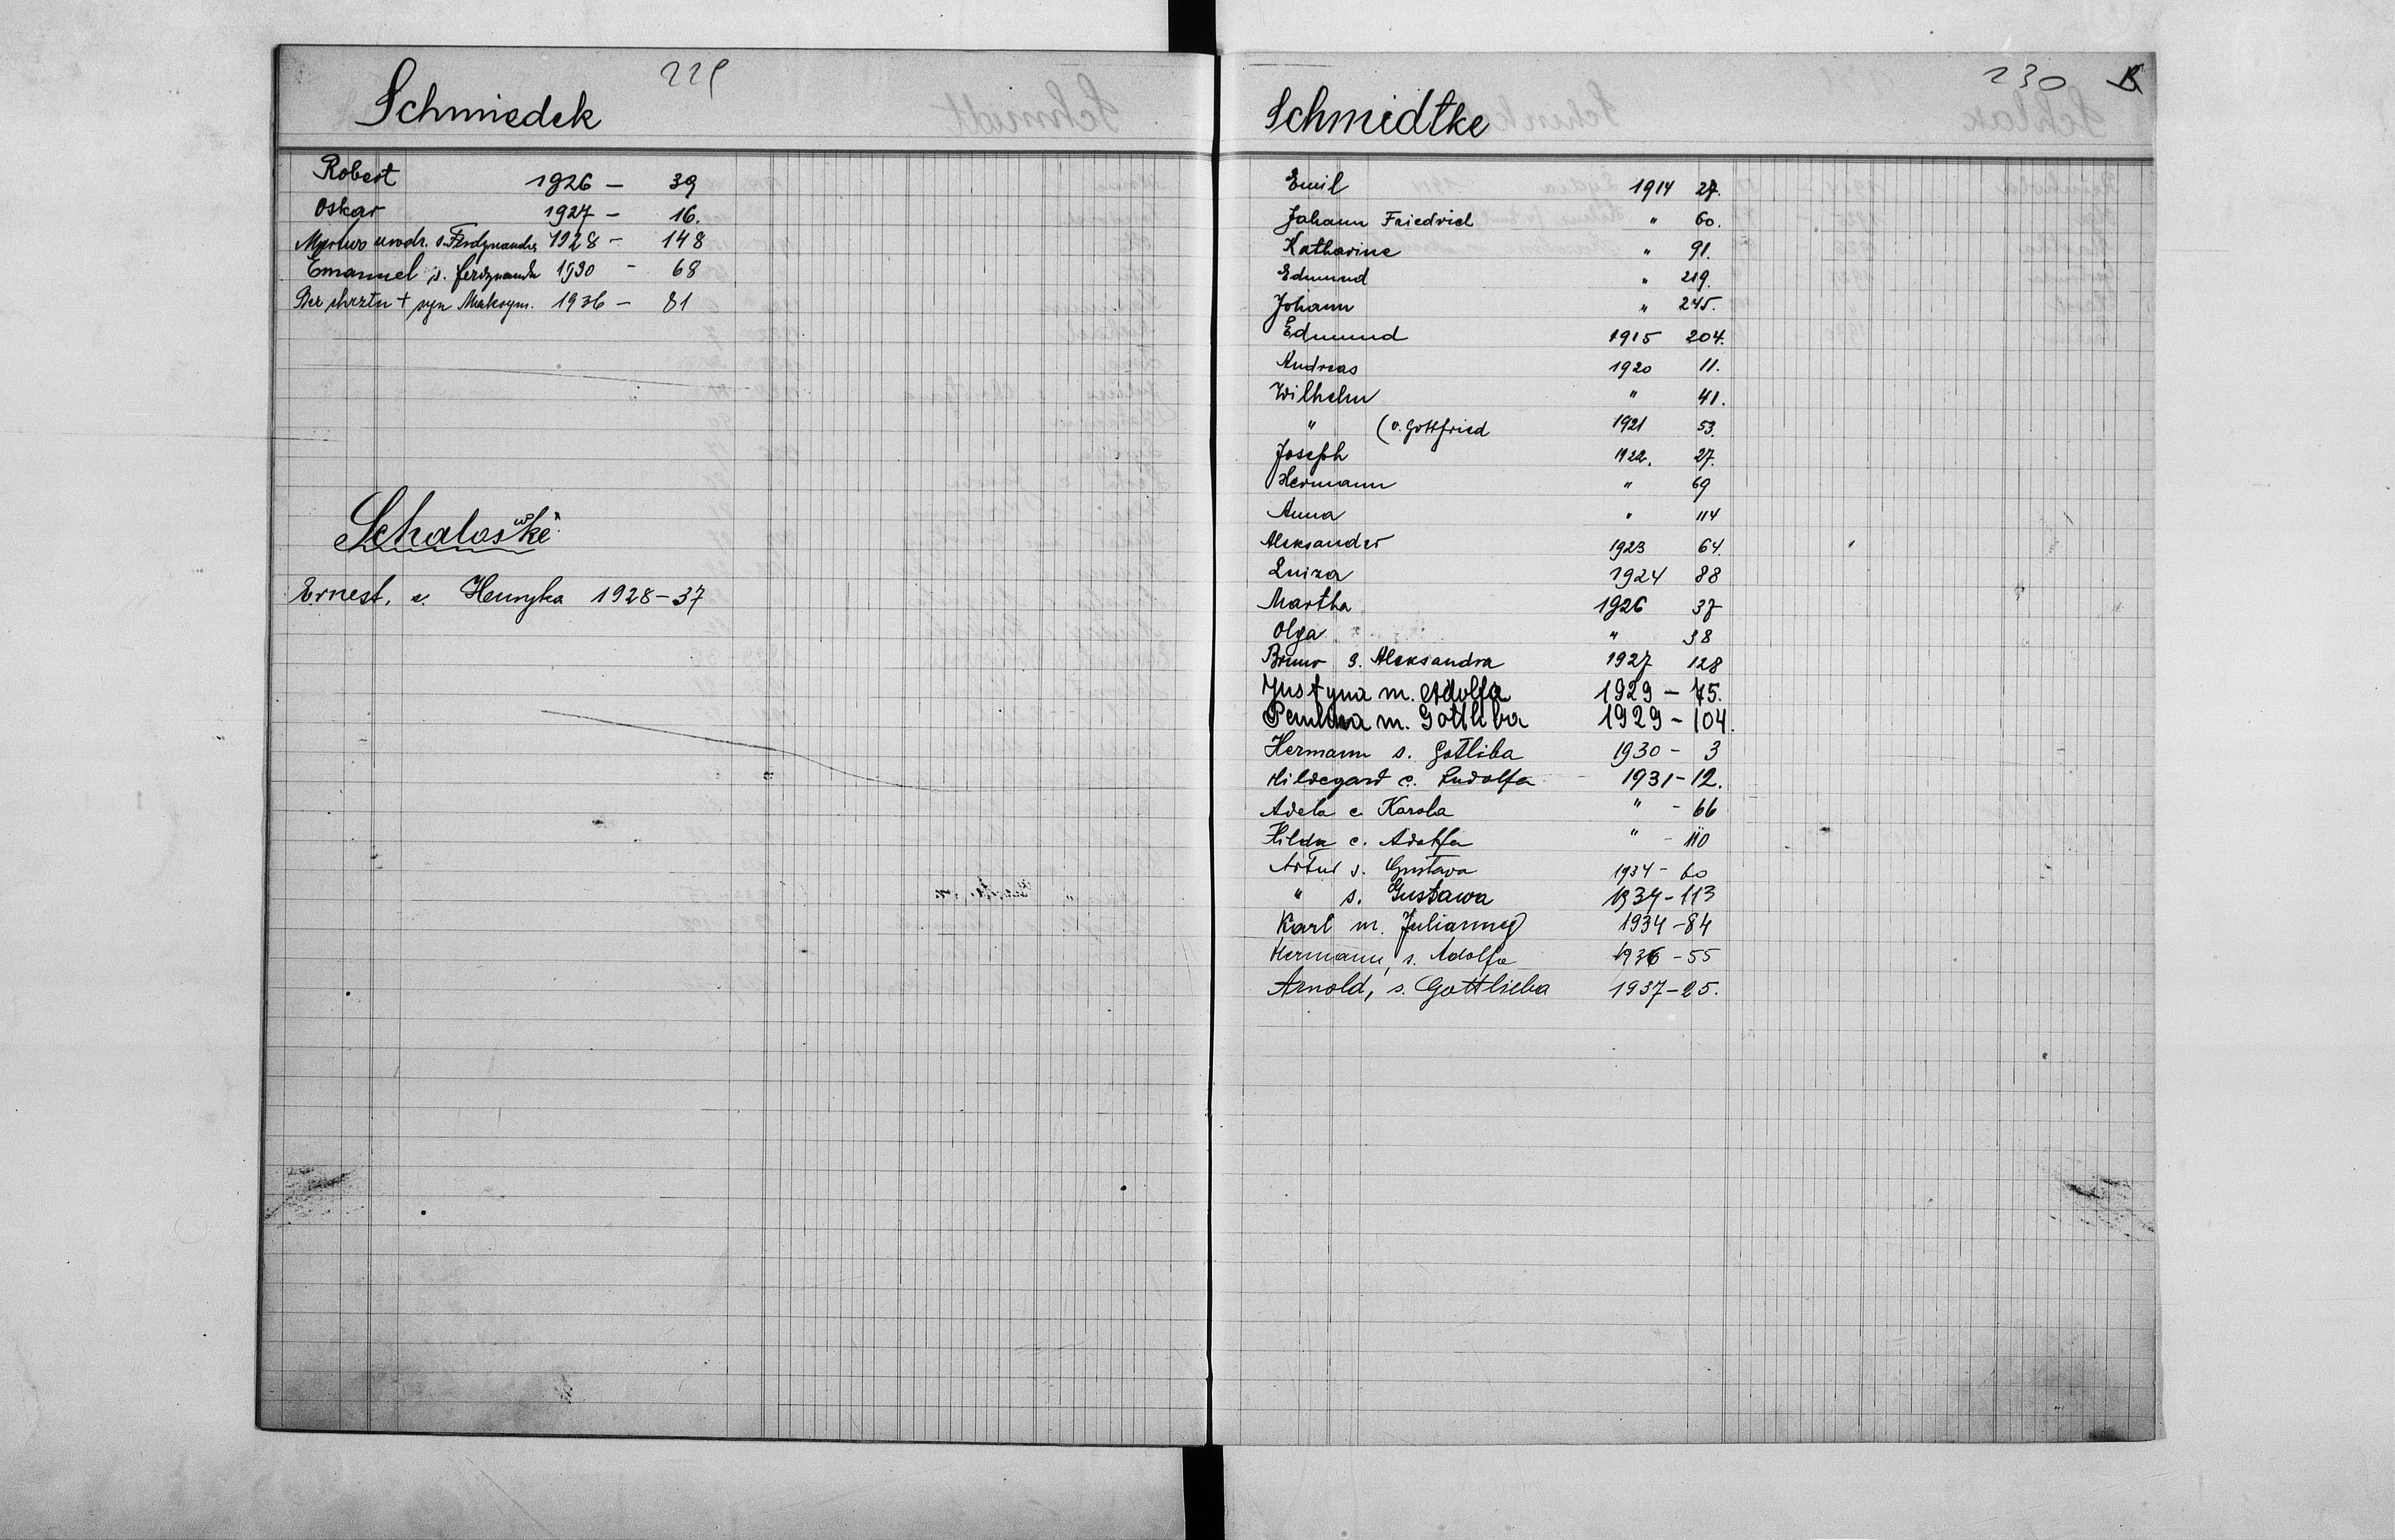 229
Schmiedek
Robert 1926 — 39
Oskar 1927 — 16.
Martwo urodz. s. Ferdynanda 1928 — 148
Emanuel s. Ferdynanda 1930 - 68
Bez chrztu + syn Maksym. 1936 — 81
Schaloske
Ernest, s. Henryka 1928 - 37
230 B
Schmidtke
Emil 1914 27.
Johann Friedrich " 60.
Katharine " 91.
Edmund " 219.
Johann " 245.
Edmund 1915 204.
Andreas 1920 11.
Wilhelm " 41.
" (v. Gottfried 1921 53.
Joseph 1922. 27.
Hermann " 69
Anna " 114
Aleksander 1923 64.
Luiza 1924 88
Martha 1926 37
Olga " 38
Bruno s. Aleksandra 1927 128
Justyna m. Adolfa 1929 — 75.
Paulina m. Gottliba 1929 - 104.
Hermann s. Gotliba 1930 - 3
Hildegard c. Rudolfa 1931 - 12.
Adela c. Karola " - 66
Hilda c. Adolfa " - 110
Artur s. Gustava 1934 - 60
" s. Gustawa 1934 - 113
Karl m. Julianny 1934 - 84
Hermann, s. Adolfa 1936 - 55
Arnold, s. Gottlieba 1937 - 25.